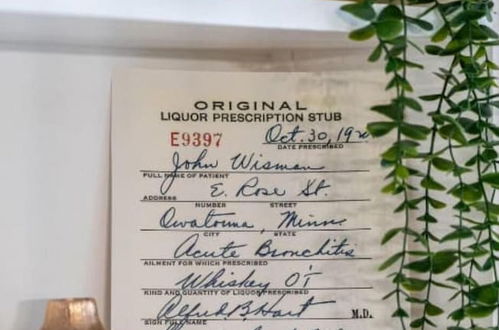 ORIGINAL
LIQUOR PRESCRIPTION STUB
E9397 Oct. 30, 192
DATE PRESCRIBED
John Wisman
FULL NAME OF PATIENT
E. Rose St.
ADDRESS NUMBER STREET
Owatonna, Minn
CITY STATE
Acute Bronchitis
AILMENT FOR WHICH PRESCRIBED
Whiskey O
KIND AND QUANTITY OF LIQUOR PRESCRIBED
Alfred B. Hart M.D.
SIGN FULL NAME